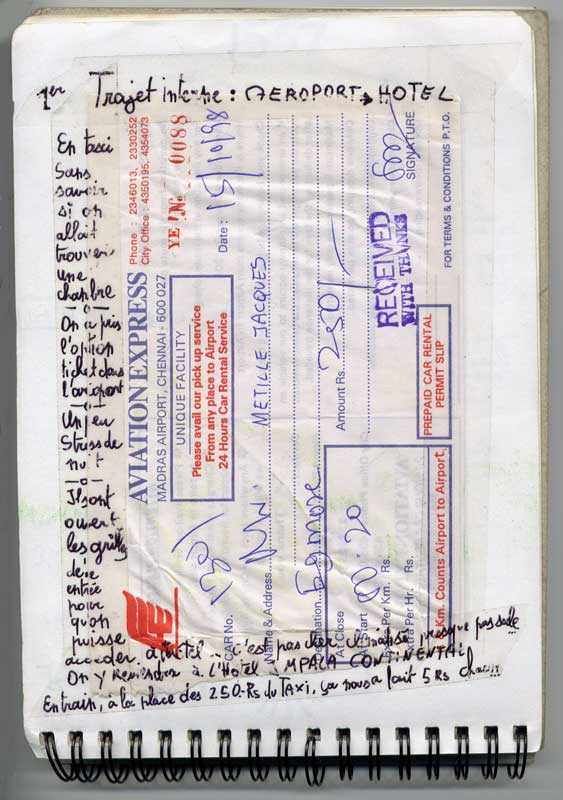 1er Trajet interne : AEROPORT → HOTEL
En taxi
Sans
savoir
si on
allait
trouver
une
chambre
On a pris
l'option
ticket dans
l'aéroport
Un peu
Stress de
nuit
Ils ont
ouvert
les grilles
de
entrée
pour
qu'on
puisse
accéder. à l'hôtel ... c'est pas cher climatisé, presque pas salle
On y reviendra à l'Hotel IMPALA CONTINENTAL
En train, à la place des 250.-Rs du TAXI, ça nous a fait 5 Rs chacun
AVIATION EXPRESS
MADRAS AIRPORT, CHENNAI - 600 027
Phone : 2346013, 2330252
City Office : 4350195, 4354073
UNIQUE FACILITY
Please avail our pick up service
From any place to Airport
24 Hours Car Rental Service
YE No 0088
Date : 15/10/98
CAR No.
Name & Address METILLE JACQUES
Destination Egmore
Amount Rs. 250/-
At Close
At Start 00.20
Extra Per Km. Rs.
Extra Per Hr. Rs.
Km. Counts Airport to Airport.
PREPAID CAR RENTAL
PERMIT SLIP
RECEIVED
WITH THANKS
SIGNATURE
FOR TERMS & CONDITIONS P.T.O.